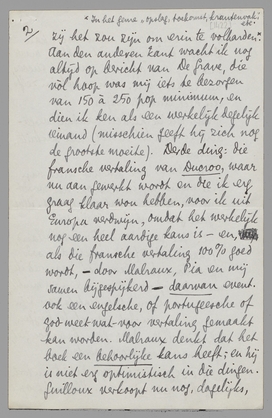 2)
"In het genre "opslag, toekomst, krantenvak"
etc.
zij het zou zijn om erin te volharden".
Aan den anderen kant wacht ik nog
altijd op bericht van De Grave, die
vol hoop was mij iets te bezorgen
van 150 à 250 pop minimum, en
dien ik ken als een werkelijk degelijk
iemand (misschien geeft hij zich nog
de grootste moeite). Derde ding: die
fransche vertaling van Ducroo, waar
nu aan gewerkt wordt en die ik erg
graag klaar wou hebben, voor ik uit
Europa verdwijn, omdat het werkelijk
nog een heel aardige kans is – en,
als die fransche vertaling 100% goed
wordt, – door Malraux, Pia en mij
samen bijgespijkerd – daarvan event.
ook een engelsche, of portugeesche of
god-weet-wat-voor vertaling gemaakt
kan worden. Malraux denkt dat het
boek een behoorlijke kans heeft; en hij
is niet erg optimistisch in die dingen.
Guilloux verkoopt nu nog, dagelijks,